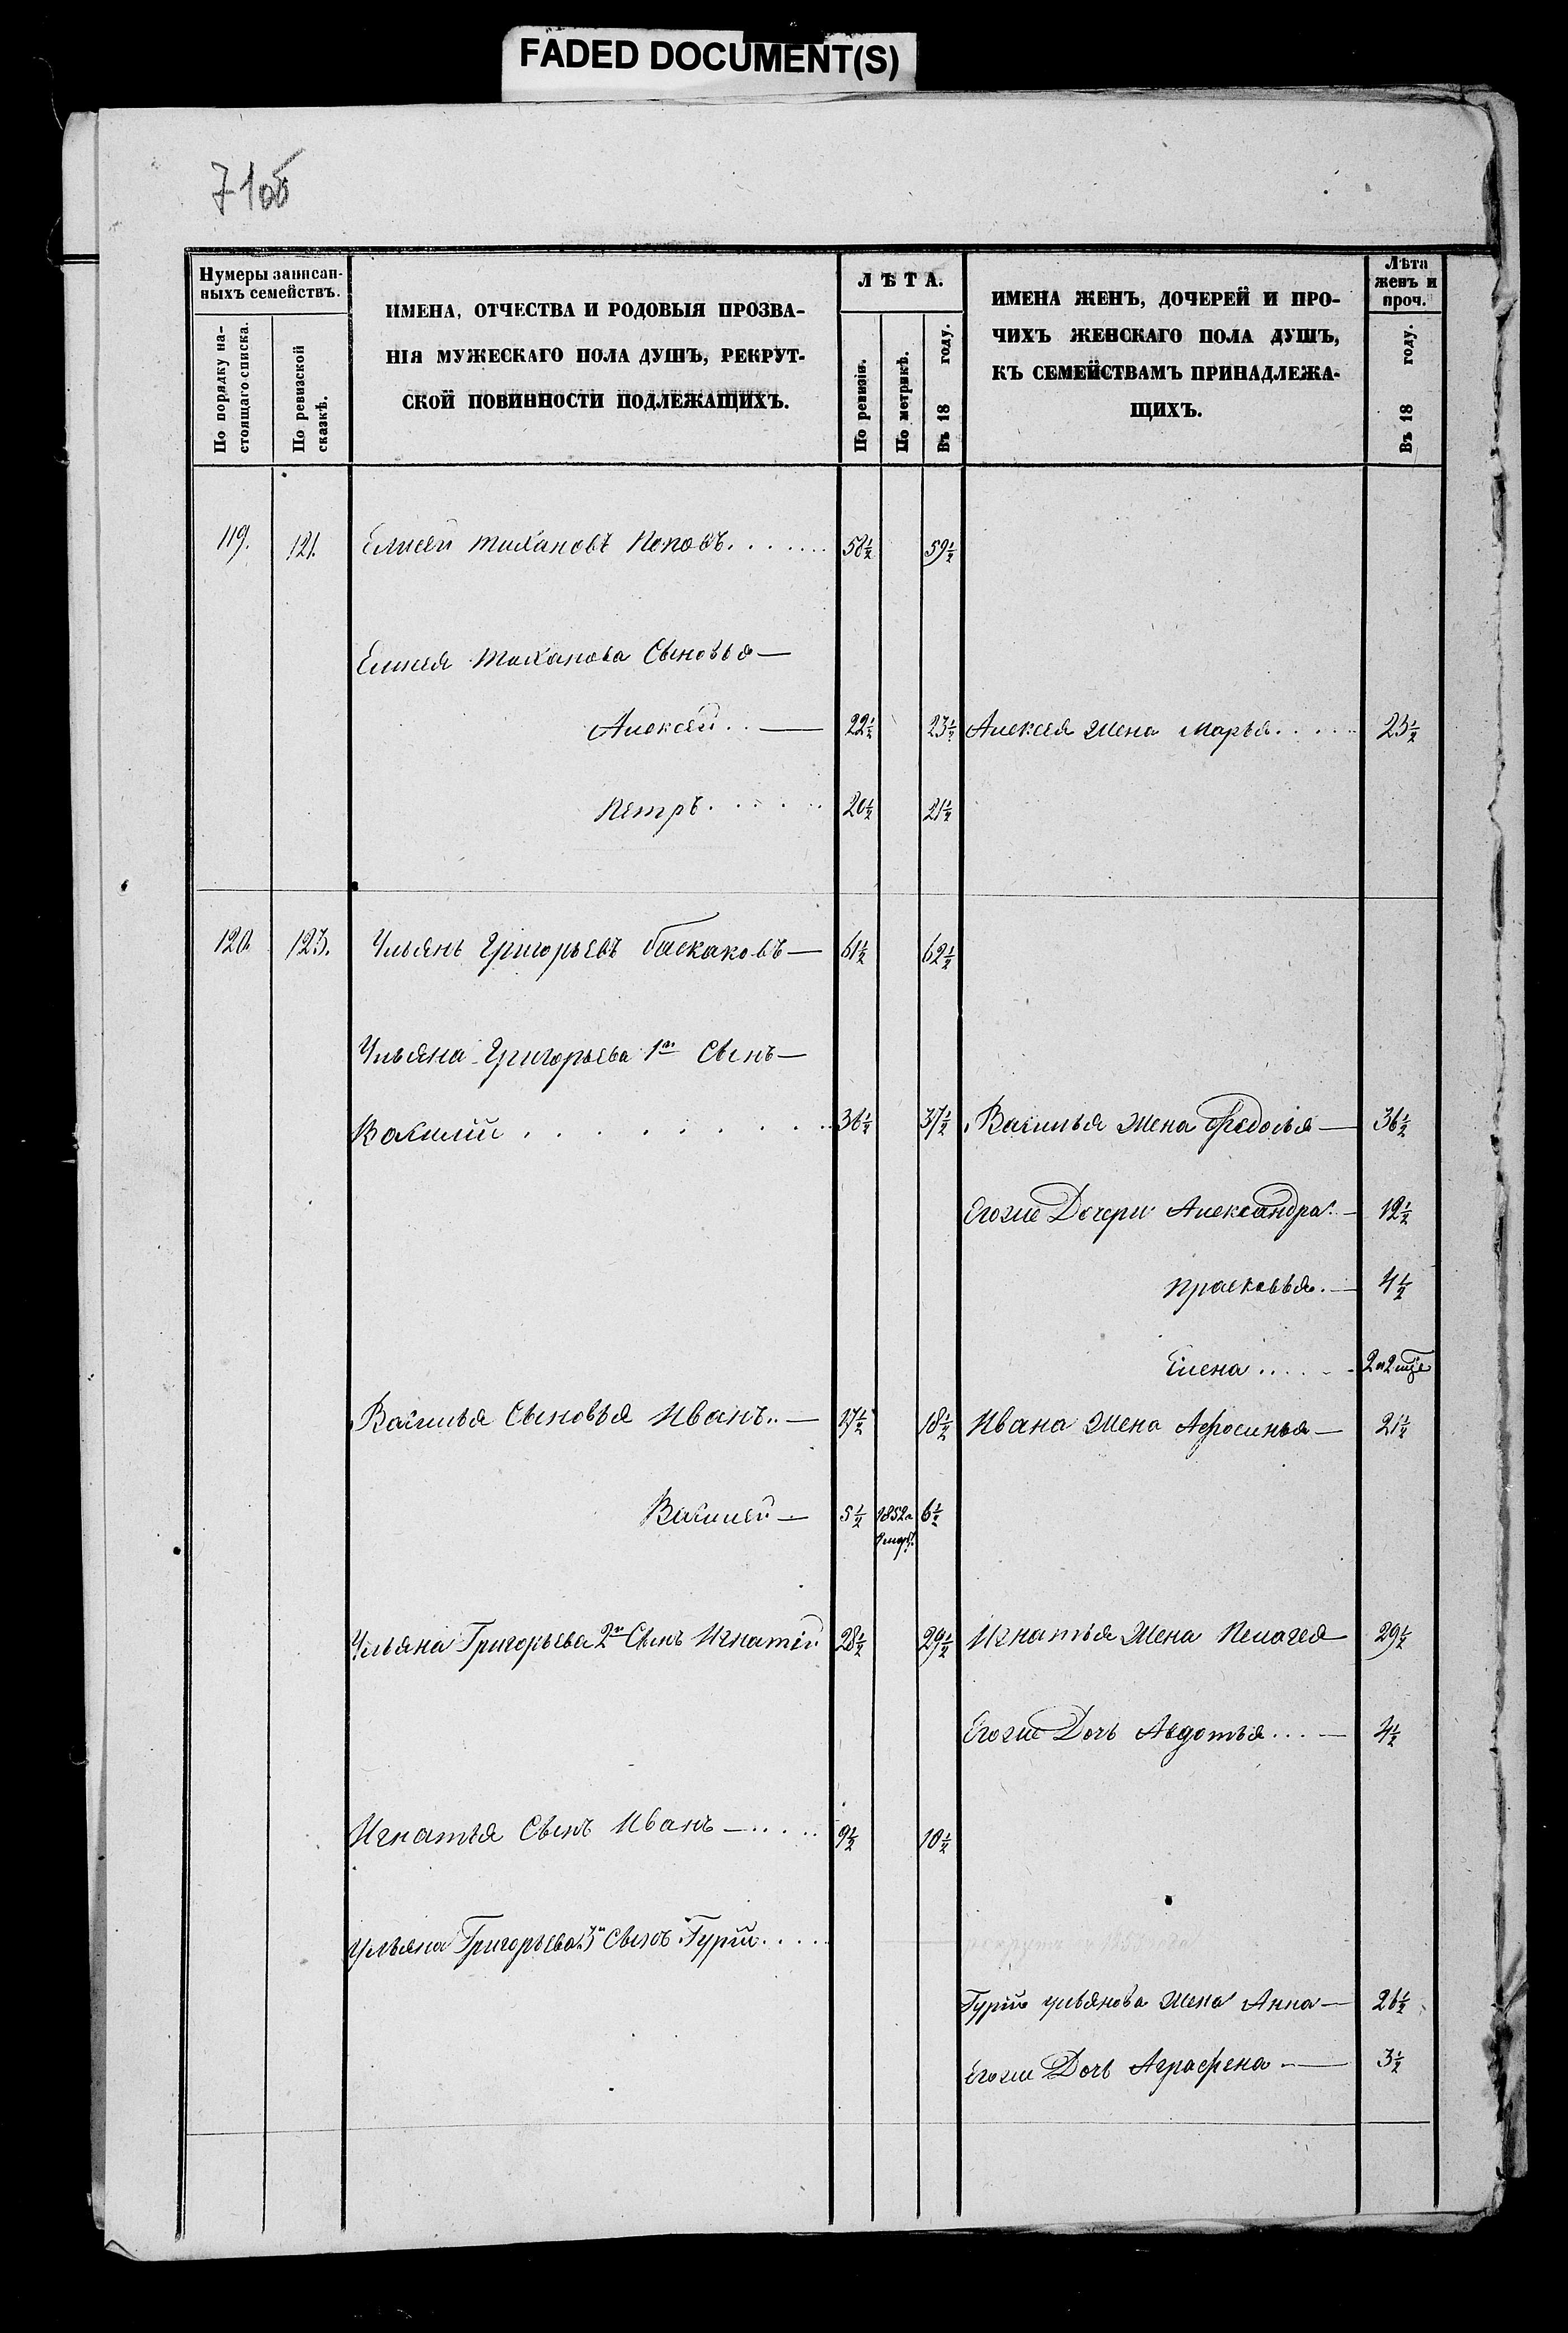 FADED DOCUMENT(S)
71об
Нумеры записан-
ныхъ семействъ.
По порядку на-
стоящаго списка.
По ревизской
сказкѣ.
ИМЕНА, ОТЧЕСТВА И РОДОВЫЯ ПРОЗВА-
НІЯ МУЖЕСКАГО ПОЛА ДУШЪ, РЕКРУТ-
СКОЙ ПОВИННОСТИ ПОДЛЕЖАЩИХЪ.
ЛѢТА.
По ревизіи.
По метрикѣ.
Въ 18 году.
ИМЕНА ЖЕНЪ, ДОЧЕРЕЙ И ПРО-
ЧИХЪ ЖЕНСКАГО ПОЛА ДУШЪ,
КЪ СЕМЕЙСТВАМЪ ПРИНАДЛЕЖА-
ЩИХЪ.
Лѣта
женъ и
проч.
Въ 18 году.
119. 121. Елисей Тихановъ Поповъ....... 58½ 59½
Елисея Тиханова Сыновья—
Алексѣй..— 22½ 23½ Алексея Жена Марья...... 25½
Петръ...... 20½ 21½
120. 123. Ульянъ Григорьевъ Баскаковъ— 61½ 62½
Ульяна Григорьева 1й Сынъ—
Василій......... 36½ 37½ Василья Жена Федосья— 36½
Егоже Дочери Александра.— 12½
Прасковья.— 4½
Елена......
Василья Сыновья Иванъ..— 17½ 18½ Ивана Жена Афросинья— 21½
Василей— 5½ 1852 6½
Ульяна Григорьева 2й Сынъ Игнатій 28½ 29½ Игнатья Жена Пелагея 29½
Егоже Дочь Авдотья...— 4½
Игнатья Сынъ Иванъ—.... 9½ 10½
Ульяна Григорьева 3й Сынъ Гурій.....
Гурія Ульянова Жена Анна— 26½
Егоже Дочь Аграфена— 3½